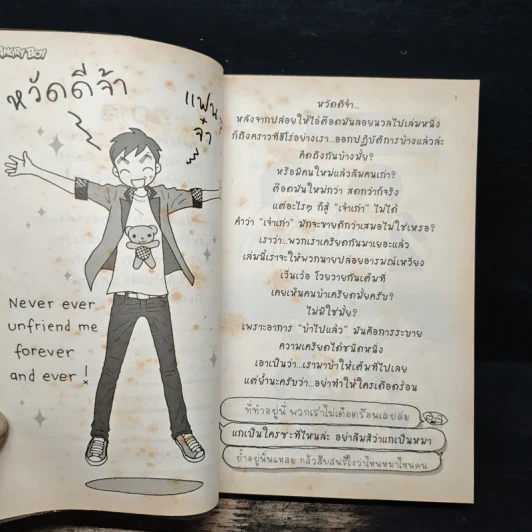 ANGRY BOY
หวัดดีจ้า
แฟนๆ
จ๋า
Never ever
unfriend me
forever
and ever!
หวัดดีจ้า...
หลังจากปล่อยให้ไอ้ต๊อดมันลอยนวลไปเล่มหนึ่ง
ก็ถึงคราวที่ฮีโร่อย่างเรา...ออกปฏิบัติการบ้างแล้วล่ะ
คิดถึงกันบ้างมั้ย?
หรือมีคนใหม่แล้วลืมคนเก่า?
ต๊อดมันใหม่กว่า สดกว่าก็จริง
แต่อะไรๆ ก็สู้ "เจ้าเก่า" ไม่ได้
คำว่า "เจ้าเก่า" มักจะขายดีกว่าเสมอไม่ใช่เหรอ?
เราว่า...พวกเราเครียดกันมาเยอะแล้ว
เล่มนี้เราจะให้พวกนายปล่อยอารมณ์เหวี่ยง
เว้นเว้อ โวยวายกันเต็มที่
เคยเห็นคนบ้าเครียดมั้ยครับ?
ไม่มีใช่มั้ย?
เพราะอาการ "บ้าไปแล้ว" มันคือการระบาย
ความเครียดได้ชนิดหนึ่ง
เอาเป็นว่า...เรามาบ้าให้เต็มที่ไปเลย
แต่ย้ำนะครับว่า...อย่าทำให้ใครเดือดร้อน
ที่ทำอยู่นี่ พวกเราไม่เดือดร้อนเลยล่ะ
แกเป็นใครซะที่ไหนล่ะ อย่าลืมสิว่าแกเป็นหมา
ย้ำอยู่นั่นแหละ กลัวสับสนรึไงว่าไหนหมาไหนคน